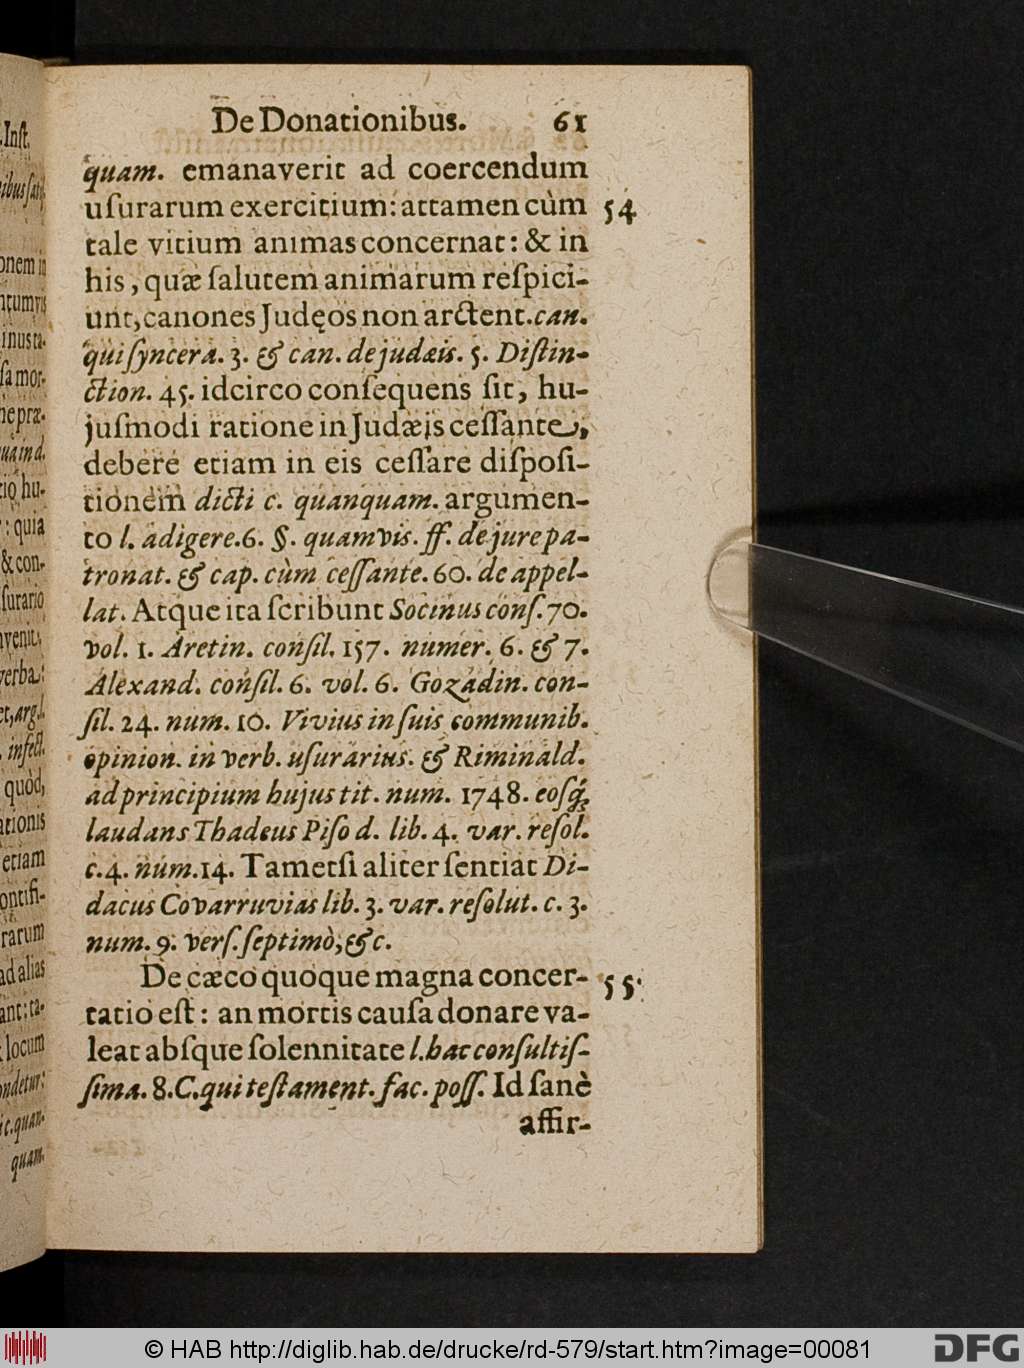 De Donationibus. 61
quam. emanaverit ad coercendum
uſurarum exercitium: attamen cùm 54
tale vitium animas concernat: & in
his, quæ ſalutem animarum reſpici-
unt, canones Judęos non arctent. can.
qui ſyncera. 3. & can. de judæis. 5. Diſtin-
ction. 45. idcirco conſequens ſit, hu-
juſmodi ratione in Judæis ceſſante,
debere etiam in eis ceſſare diſpoſi-
tionem dicti c. quanquam. argumen-
to l. adigere. 6. §. quamvis. ff. de jure pa-
tronat. & cap. cùm ceſſante. 60. de appel-
lat. Atque ita ſcribunt Socinus conſ. 70.
vol. 1. Aretin. conſil. 157. numer. 6. & 7.
Alexand. conſil. 6. vol. 6. Gozadin. con-
ſil. 24. num. 10. Vivius in ſuis communib.
opinion. in verb. uſurarius. & Riminald.
ad principium hujus tit. num. 1748. eosq́;
laudans Thadeus Piſo d. lib. 4. var. reſol.
c. 4. núm. 14. Tametſi aliter ſentiat Di-
dacus Covarruvias lib. 3. var. reſolut. c. 3.
num. 9. verſ. ſeptimò, &c.
De cæco quoque magna concer- 55.
tatio eſt: an mortis cauſa donare va-
leat abſque ſolennitate l. hac conſultiſ-
ſima. 8. C. qui teſtament. fac. poſſ. Id ſanè
affir-
. Inſt.
onem in
inus ta-
ſa mor-
ne præ-
tio hu-
: quia
& con-
ſurario
venit,
verba:
et, arg. l.
. infect.
quòd,
ationis
etiam
ontifi-
rarum
ad alias
ant: ta-
locum
ondetur:
ic. quan-
quam.
© HAB http://diglib.hab.de/drucke/rd-579/start.htm?image=00081
DFG